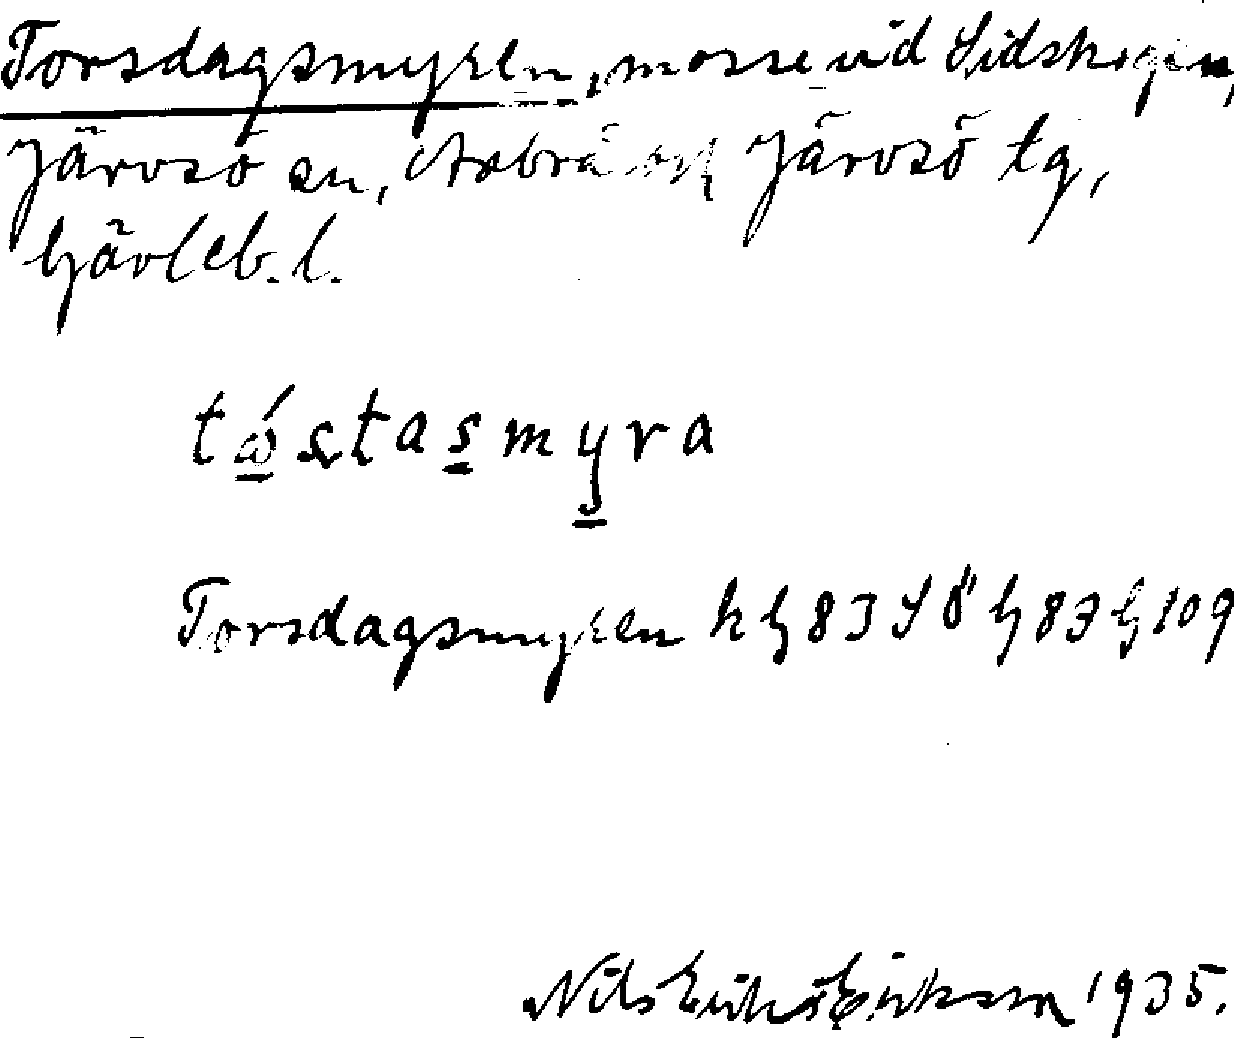 Torsdagsmyren, mosse vid Sidskogen,
Järvsö sn, Arbrå och Järvsö tg,
Gävleb. l.
tǿstasmyra
Torsdagsmyren k G 83 SÖ G 83 G 109
Nils Eriks Eriksson 1935.